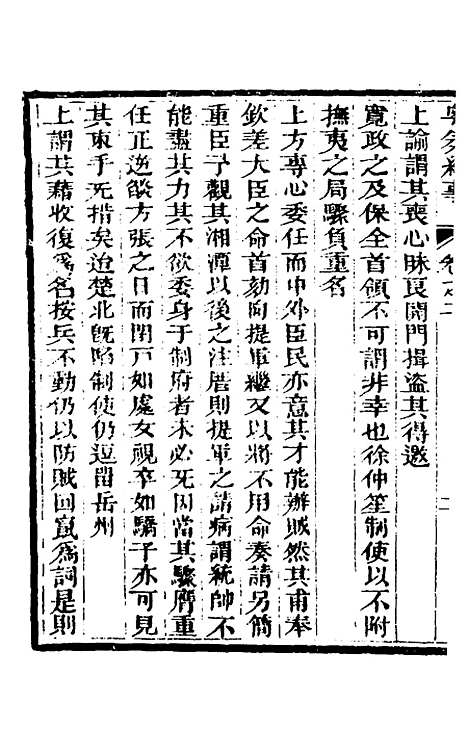 上諭謂其喪心昧良開門揖盜其得邀
寬政之及保全首領不可謂非幸也徐仲笙制使以不附
撫夷之局驟負重名
上方專心委任而中外臣民亦意其才能辦賊然其甫奉
欽差大臣之命首劾向提軍繼又以將不用命奏請另簡
重臣予觀其湘潭以後之注厝則提軍之請病謂統帥不
能盡其力其不欲委身于制府者未必死因當其驟膺重
任正逆燄方張之日而閉戸如處女視卒如驕子亦可見
其束手旡措矣迨楚北旣陷制使仍逗留岳州
上謂其藉收復爲名按兵不動仍以防賊回竄爲詞是則